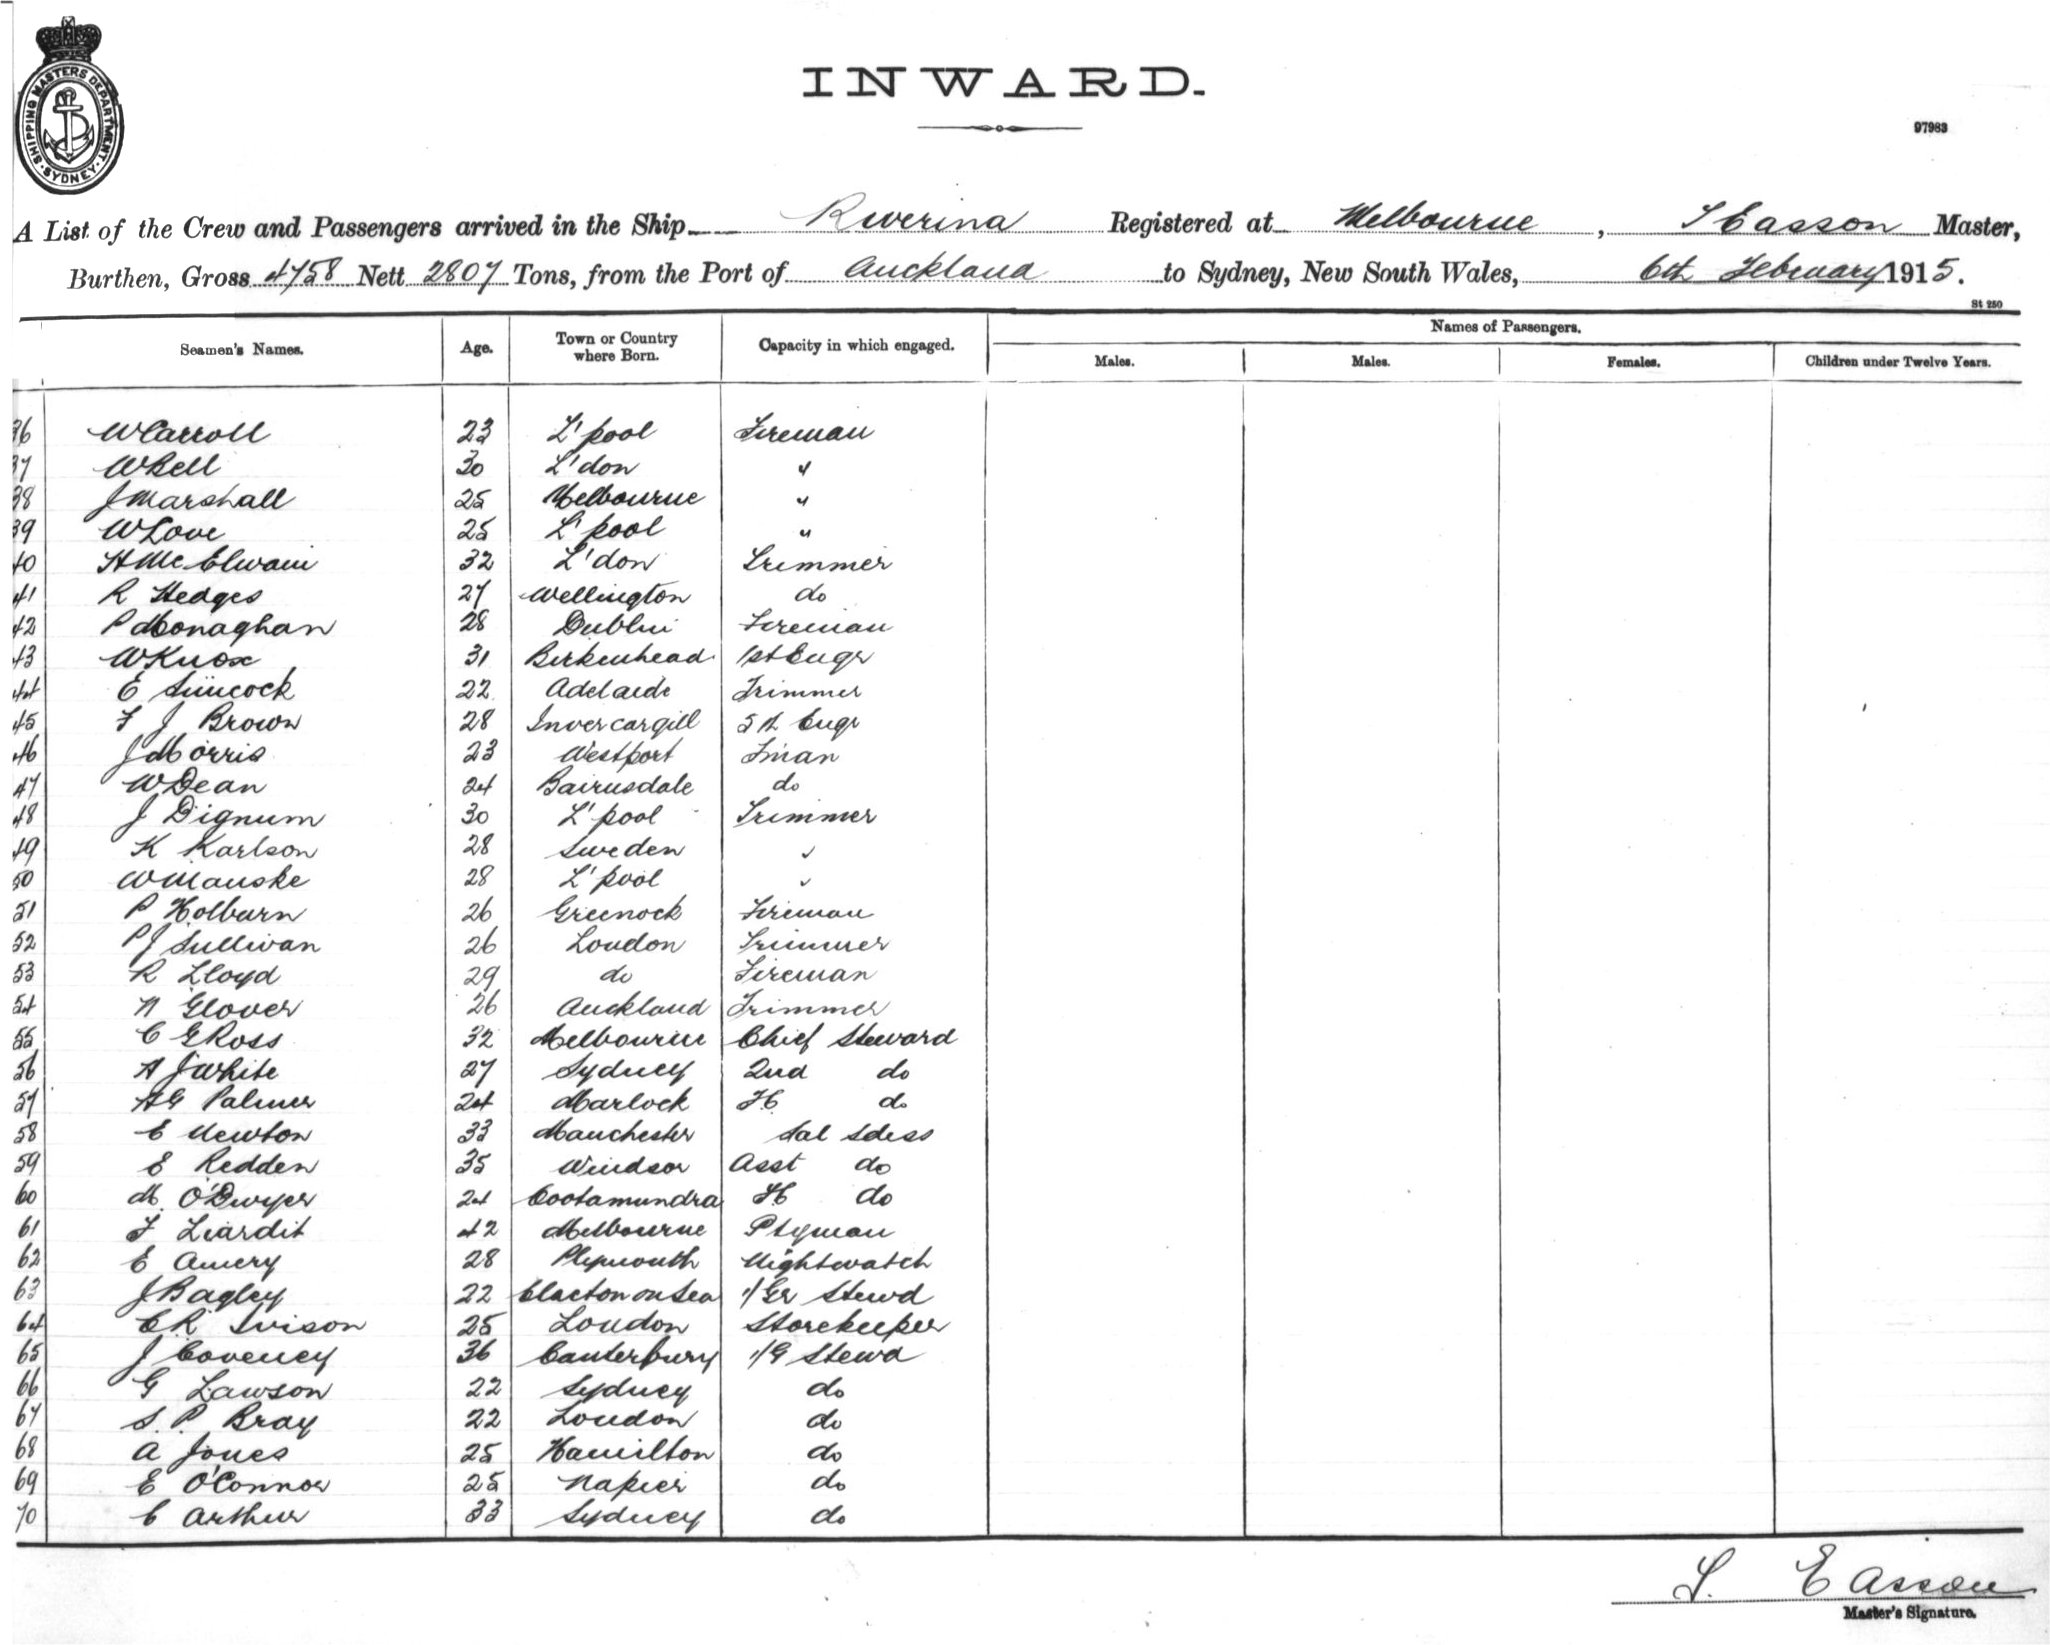 SHIPPING MASTERS DEPARTMENT. SYDNEY.
INWARD.
97983
A List of the Crew and Passengers arrived in the Ship Riverina Registered at Melbourne, S Easson Master,
Burthen, Gross 4758 Nett 2807 Tons, from the Port of Auckland to Sydney, New South Wales, 6th February 1915.
St 250
Seamen's Names. Age. Town or Country where Born. Capacity in which engaged. Names of Passengers.
Males. Males. Females. Children under Twelve Years.
36 W Carroll 23 L'pool Fireman
37 W Bell 30 L'don "
38 J Marshall 25 Melbourne "
39 W Love 25 L'pool "
40 H McElwain 32 L'don Trimmer
41 R Hedges 27 Wellington do
42 P Monaghan 28 Dublin Fireman
43 W Knox 31 Birkenhead 1st Engr
44 E Simcock 22 Adelaide Trimmer
45 F J Brown 28 Invercargill 5th Engr
46 J Morris 23 Westport F'man
47 W Dean 24 Bairnsdale do
48 J Dignum 30 L'pool Trimmer
49 K Karlson 28 Sweden "
50 W Manske 28 L'pool "
51 P Holburn 26 Greenock Fireman
52 P J Sullivan 26 London Trimmer
53 R Lloyd 29 do Fireman
54 N Glover 26 Auckland Trimmer
55 C G Ross 32 Melbourne Chief Steward
56 A J White 27 Sydney 2nd do
57 A G Palmer 24 Marlock F.C. do
58 E Newton 33 Manchester Sal Sdess
59 E Redden 35 Windsor Asst do
60 M. O'Dwyer 24 Cootamundra FC do
61 F Liardit 42 Melbourne Ptyman
62 E Amery 28 Plymouth Nightwatch
63 J Bagley 22 Clacton on Sea 1/Gr Stewd
64 C R Ivison 25 London Storekeeper
65 J Coveney 36 Canterbury 1/G Stewd
66 G Lawson 22 Sydney do
67 S. P. Bray 22 London do
68 A Jones 25 Hamilton do
69 E O'Connor 25 Napier do
70 C Arthur 33 Sydney do
S. Easson
Master's Signature.